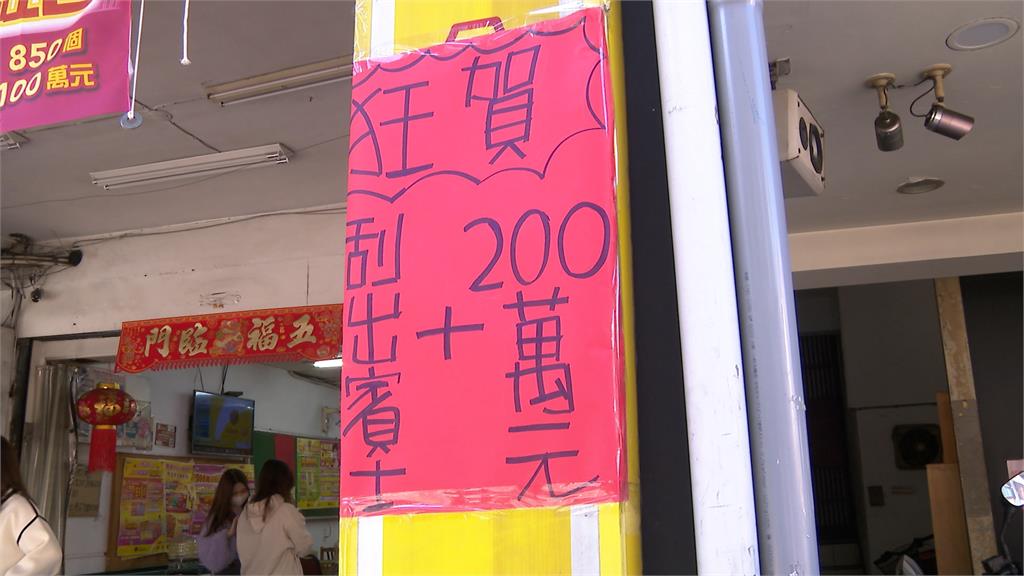 850個
100萬元
狂賀
刮出賓士
+
200萬元
五福臨門